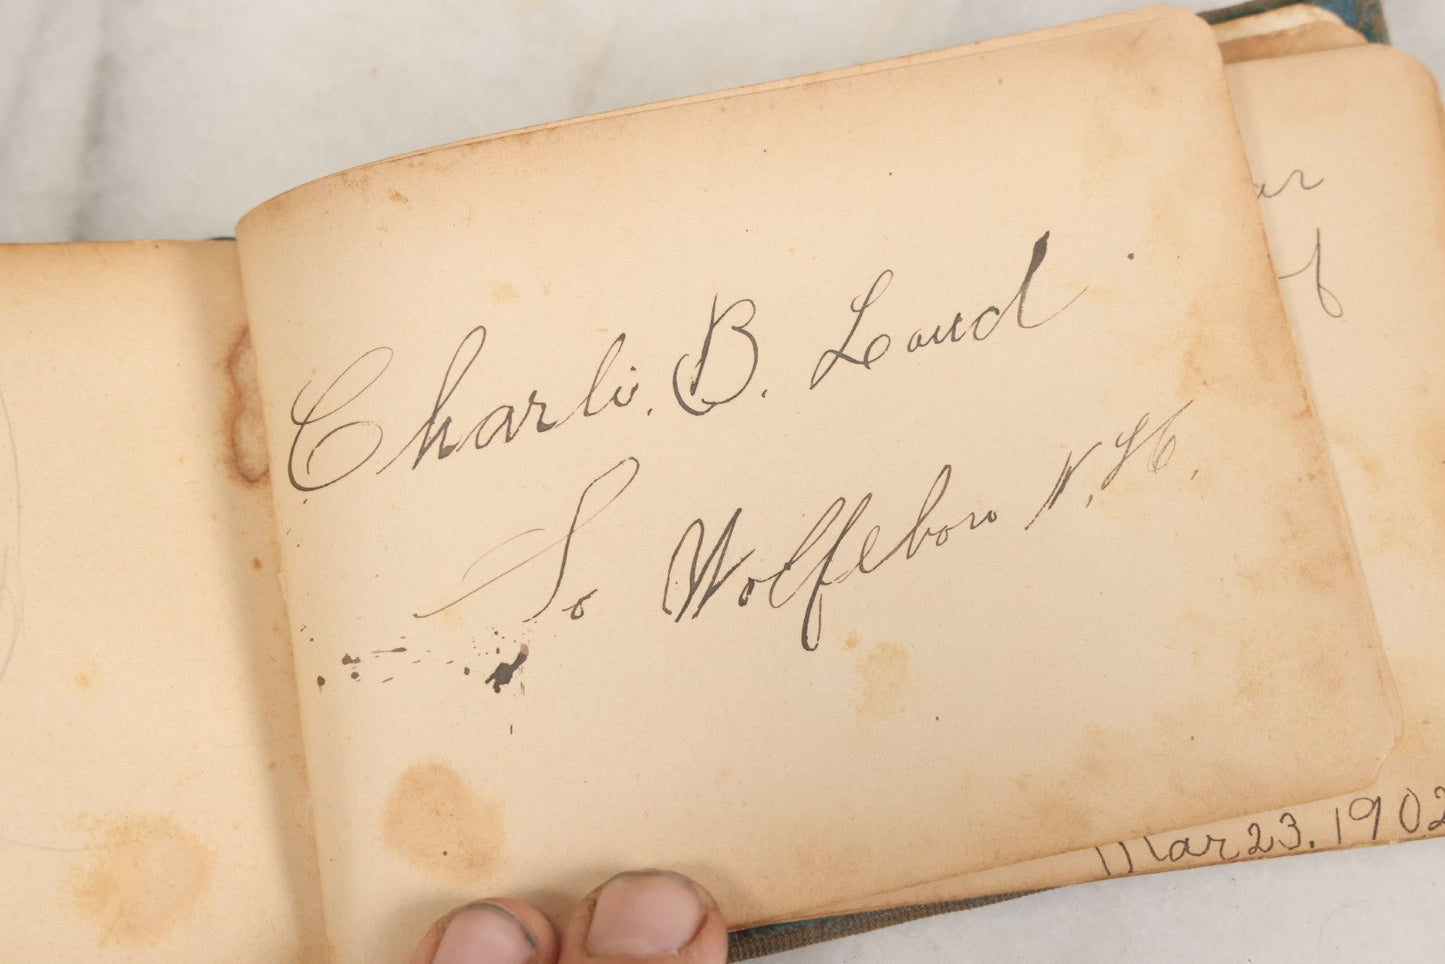 Charli. B. Loud.
So Wolfeboro N.H.
ar
of
Mar 23. 1902